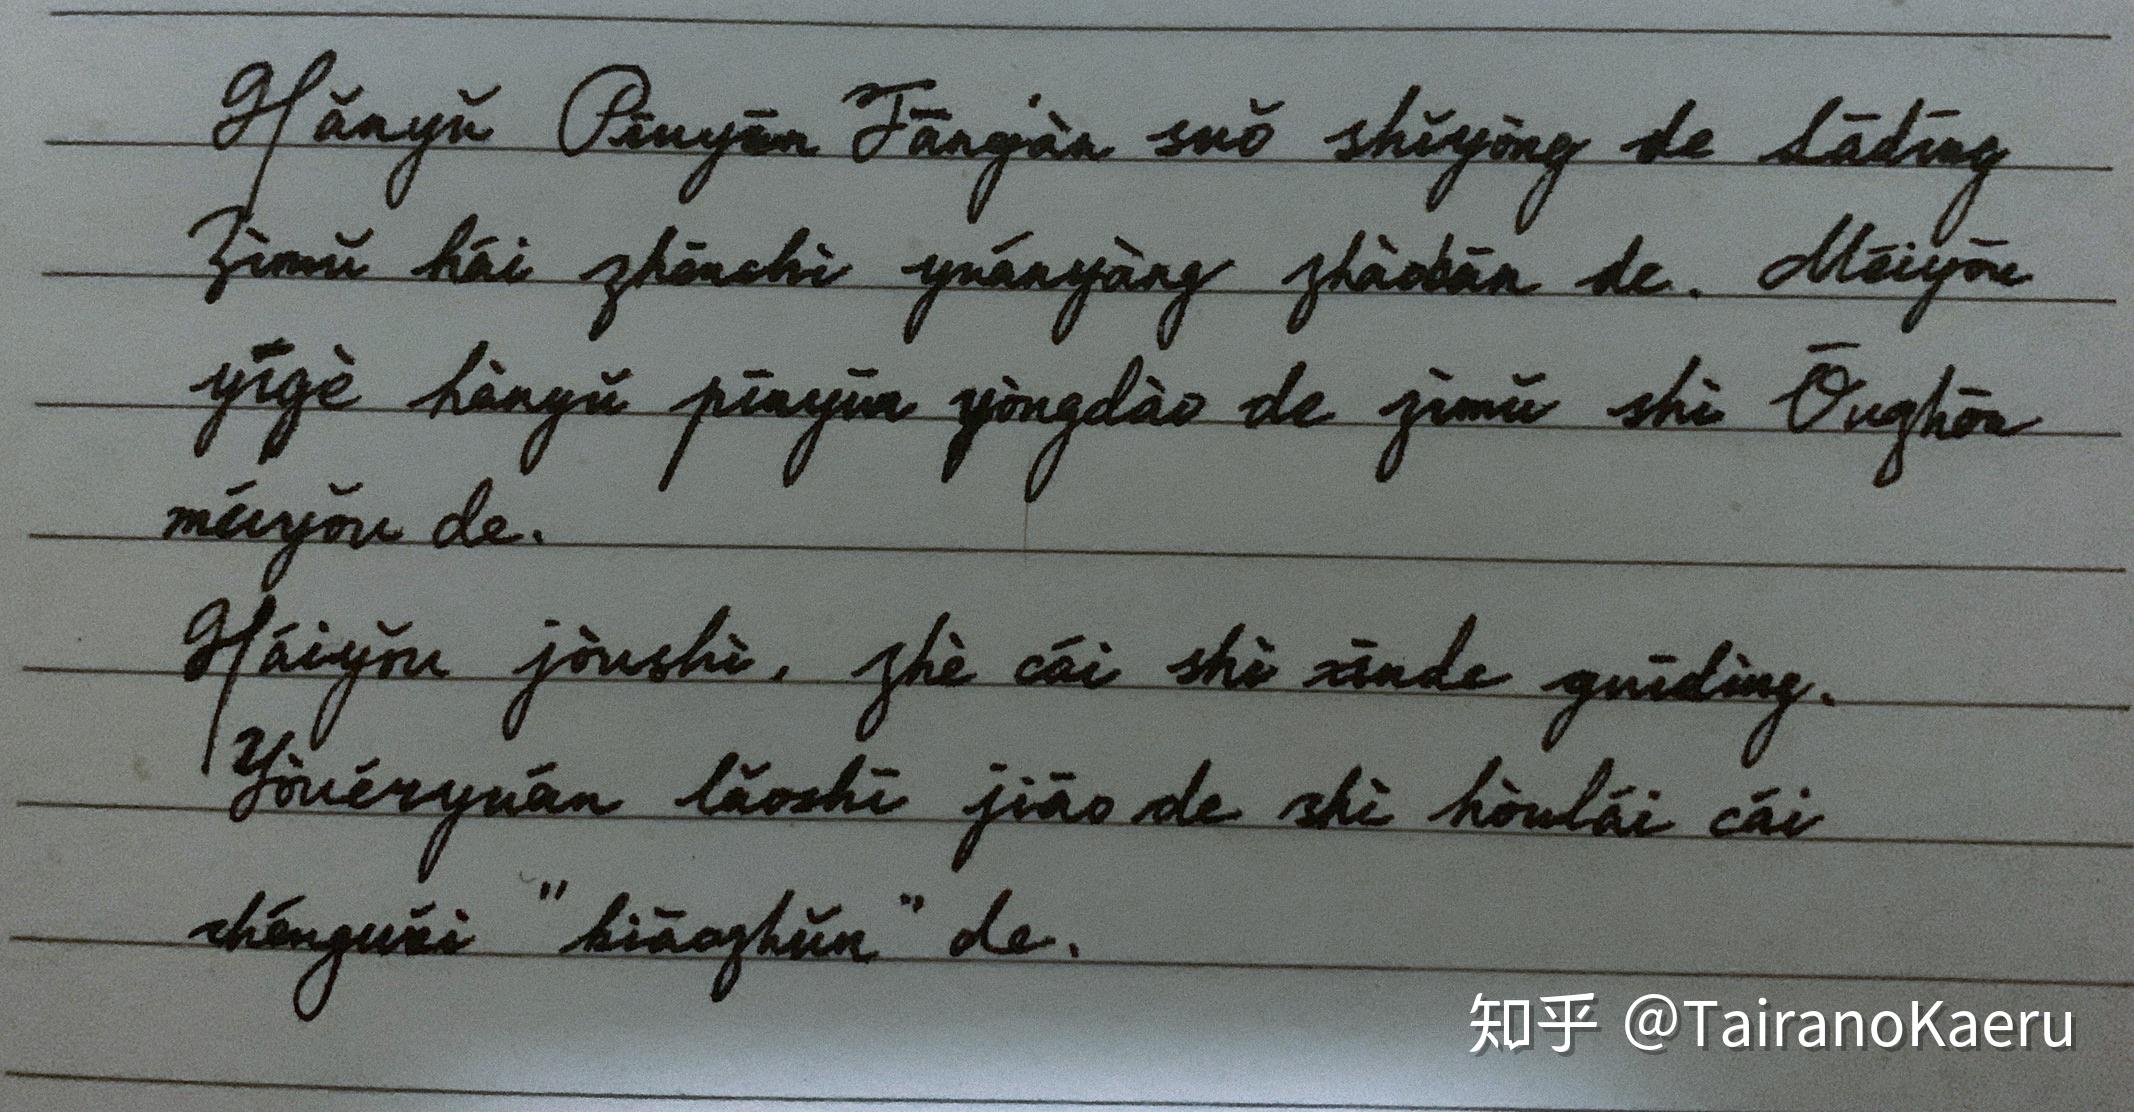 Hǎnyǔ Pīnyīn Fāng'àn suǒ shǐyòng de Lādīng
Zìmǔ hái zhēnchì yuányàng zhàobān de. Méiyǒu
yīgè hànyǔ pīnyīn yòngdào de zìmǔ shì Ōuzhōu
méiyǒu de.
Háiyǒu jòushì, zhè cái shì xīnde guīdìng.
Yòuéryuán lǎoshī jiāo de shì hòulái cái
chéngwéi "biāozhǔn" de.
知乎 @TairanoKaeru